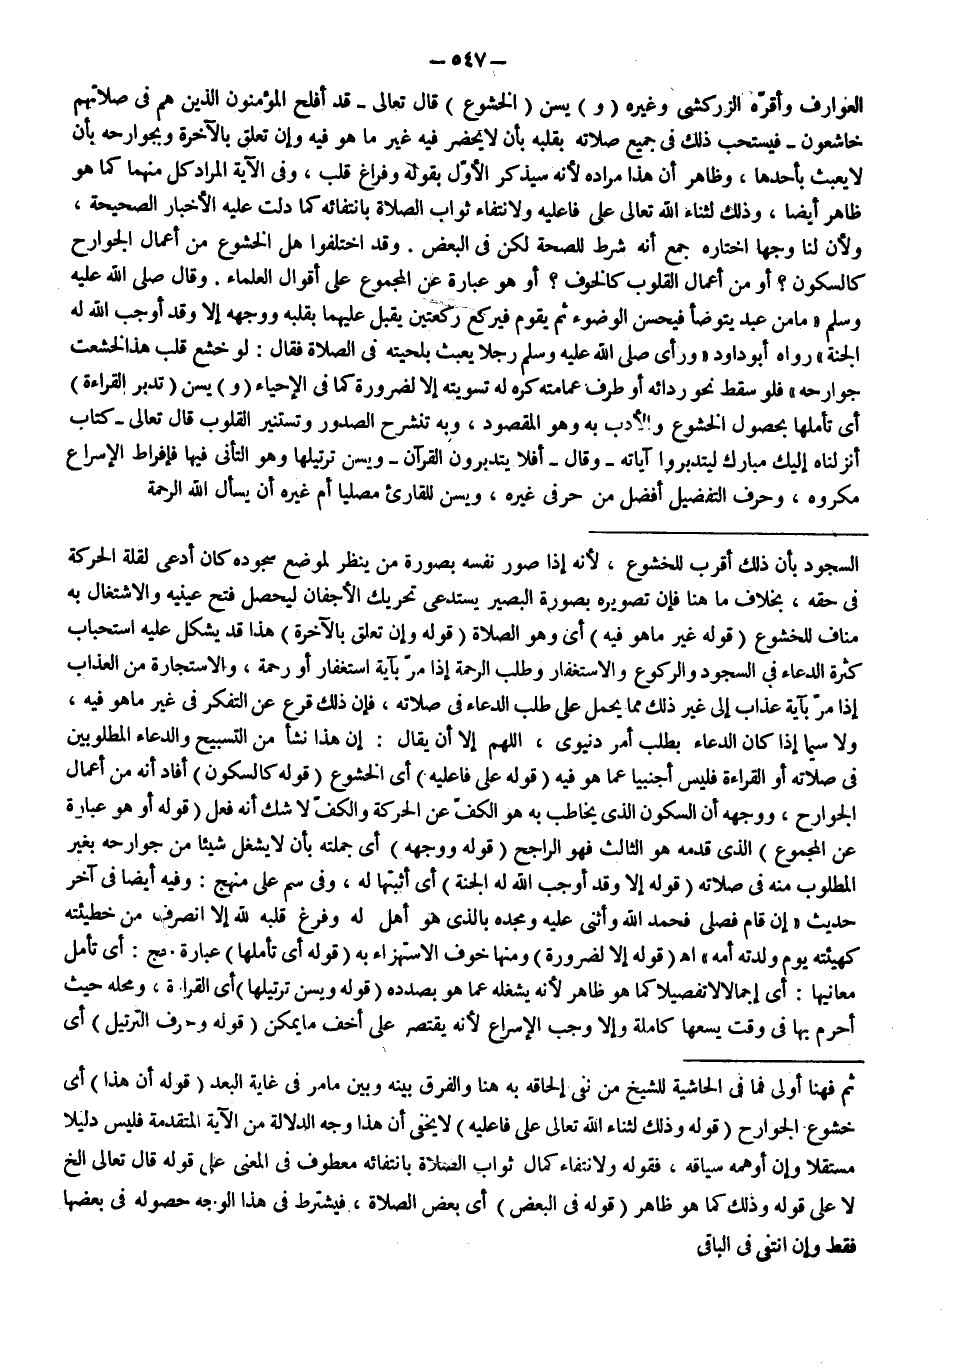 — ٥٤٧ —
العوارف وأقرّه الزركشى وغيره ( و ) يسن ( الخشوع ) قال تعالى ـ قد أفلح المؤمنون الذين هم فى صلاتهم
خاشعون ـ فيستحب ذلك فى جميع صلاته بقلبه بأن لايحضر فيه غير ما هو فيه وإن تعلق بالآخرة وبجوارحه بأن
لايعبث بأحدها ، وظاهر أن هذا مراده لأنه سيذكر الأوّل بقوله وفراغ قلب ، وفى الآية المراد كل منهما كما هو
ظاهر أيضا ، وذلك لثناء الله تعالى على فاعليه ولانتفاء ثواب الصلاة بانتفائه كما دلت عليه الأخبار الصحيحة ،
ولأن لنا وجها اختاره جمع أنه شرط للصحة لكن فى البعض . وقد اختلفوا هل الخشوع من أعمال الجوارح
كالسكون ؟ أو من أعمال القلوب كالخوف ؟ أو هو عبارة عن المجموع على أقوال العلماء . وقال صلى الله عليه
وسلم « مامن عبد يتوضأ فيحسن الوضوء ثم يقوم فيركع ركعتين يقبل عليهما بقلبه ووجهه إلا وقد أوجب الله له
الجنة » رواه أبو داود « ورأى صلى الله عليه وسلم رجلا يعبث بلحيته فى الصلاة فقال : لو خشع قلب هذا لخشعت
جوارحه » فلو سقط نحو ردائه أو طرف عمامته كره له تسويته إلا لضرورة كما فى الإحياء ( و ) يسن ( تدبر القراءة )
أى تأملها بحصول الخشوع والأدب به وهو المقصود ، وبه تنشرح الصدور وتستنير القلوب قال تعالى ـ كتاب
أنزلناه إليك مبارك ليتدبروا آياته ـ وقال ـ أفلا يتدبرون القرآن ـ ويسن ترتيلها وهو التأنى فيها فإفراط الإسراع
مكروه ، وحرف التفضيل أفضل من حرفى غيره ، ويسن للقارئ مصليا أم غيره أن يسأل الله الرحمة
السجود بأن ذلك أقرب للخشوع ، لأنه إذا صور نفسه بصورة من ينظر لموضع سجوده كان أدعى لقلة الحركة
فى حقه ، بخلاف ما هنا فإن تصويره بصورة البصير يستدعى تحريك الأجفان ليحصل فتح عينيه والاشتغال به
مناف للخشوع ( قوله غير ماهو فيه ) أى وهو الصلاة ( قوله وإن تعلق بالآخرة ) هذا قد يشكل عليه استحباب
كثرة الدعاء فى السجود والركوع والاستغفار وطلب الرحمة إذا مرّ بآية استغفار أو رحمة ، والاستجارة من العذاب
إذا مرّ بآية عذاب إلى غير ذلك مما يحمل على طلب الدعاء فى صلاته ، فإن ذلك فرع عن التفكر فى غير ماهو فيه ،
ولا سيما إذا كان الدعاء بطلب أمر دنيوى ، اللهم إلا أن يقال : إن هذا نشأ من التسبيح والدعاء المطلوبين
فى صلاته أو القراءة فليس أجنبيا عما هو فيه ( قوله على فاعليه ) أى الخشوع ( قوله كالسكون ) أفاد أنه من أعمال
الجوارح ، ووجهه أن السكون الذى يخاطب به هو الكفّ عن الحركة والكفّ لا شك أنه فعل ( قوله أو هو عبارة
عن المجموع ) الذى قدمه هو الثالث فهو الراجح ( قوله ووجهه ) أى جملته بأن لايشغل شيئا من جوارحه بغير
المطلوب منه فى صلاته ( قوله إلا وقد أوجب الله له الجنة ) أى أثبتها له ، وفى سم على منهج : وفيه أيضا فى آخر
حديث « إن قام فصلى فحمد الله وأثنى عليه ومجده بالذى هو أهل له وفرغ قلبه لله إلا انصرف من خطيئته
كهيئته يوم ولدته أمه » اه ( قوله إلا لضرورة ) ومنها خوف الاستهزاء به ( قوله أى تأملها ) عبارة حج : أى تأمل
معانيها : أى إجمالا لاتفصيلا كما هو ظاهر لأنه يشغله عما هو بصدده ( قوله ويسن ترتيلها ) أى القراءة ، ومحله حيث
أحرم بها فى وقت يسعها كاملة وإلا وجب الإسراع لأنه يقتصر على أخف مايمكن ( قوله وحرف الترتيل ) أى
ثم فهنا أولى فما فى الحاشية للشيخ من نفى إلحاقه به هنا والفرق بينه وبين مامر فى غاية البعد ( قوله أن هذا ) أى
خشوع الجوارح ( قوله وذلك لثناء الله تعالى على فاعليه ) لايخفى أن هذا وجه الدلالة من الآية المتقدمة فليس دليلا
مستقلا وإن أوهمه سياقه ، فقوله ولانتفاء كمال ثواب الصلاة بانتفائه معطوف فى المعنى على قوله قال تعالى الخ
لا على قوله وذلك كما هو ظاهر ( قوله فى البعض ) أى بعض الصلاة ، فيشترط فى هذا الوجه حصوله فى بعضها
فقط وإن انتفى فى الباقى